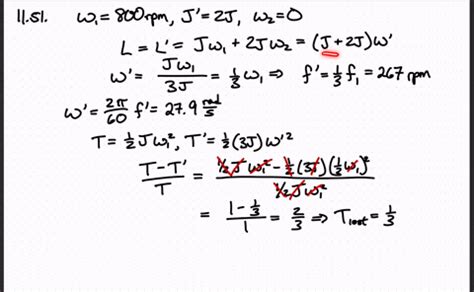 11.51. ω₁ = 800rpm, J' = 2J, ω₂ = 0
L = L' = Jω₁ + 2Jω₂ = (J + 2J)ω'
ω' = Jω₁/3J = 1/3 ω₁ ⇒ f' = 1/3 f₁ = 267 rpm
ω' = 2π/60 f' = 27.9 rad/s
T = 1/2 Jω₁², T' = 1/2 (3J) ω'²
(T - T')/T = (1/2 Jω₁² - 1/2 (3J)(1/3 ω₁)²)/(1/2 Jω₁²)
= (1 - 1/3)/1 = 2/3 ⇒ T lost = 1/3